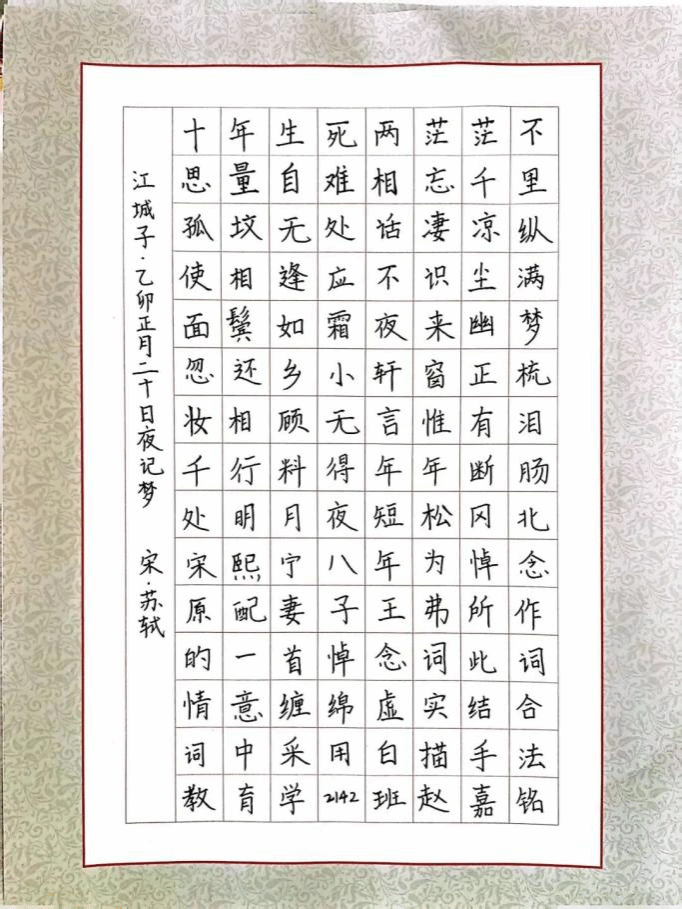 江城子·乙卯正月二十日夜记梦 宋·苏轼
十年生死两茫茫不
思量自难相忘千里
孤坟无处话凄凉纵
使相逢应不识尘满
面鬓如霜夜来幽梦
忽还乡小轩窗正梳
妆相顾无言惟有泪
千行料得年年断肠
处明月夜短松冈北
宋熙宁八年为悼念
原配妻子王弗所作
的一首悼念词此词
情意缠绵虚实结合
词中采用白描手法
教育学2142班赵嘉铭